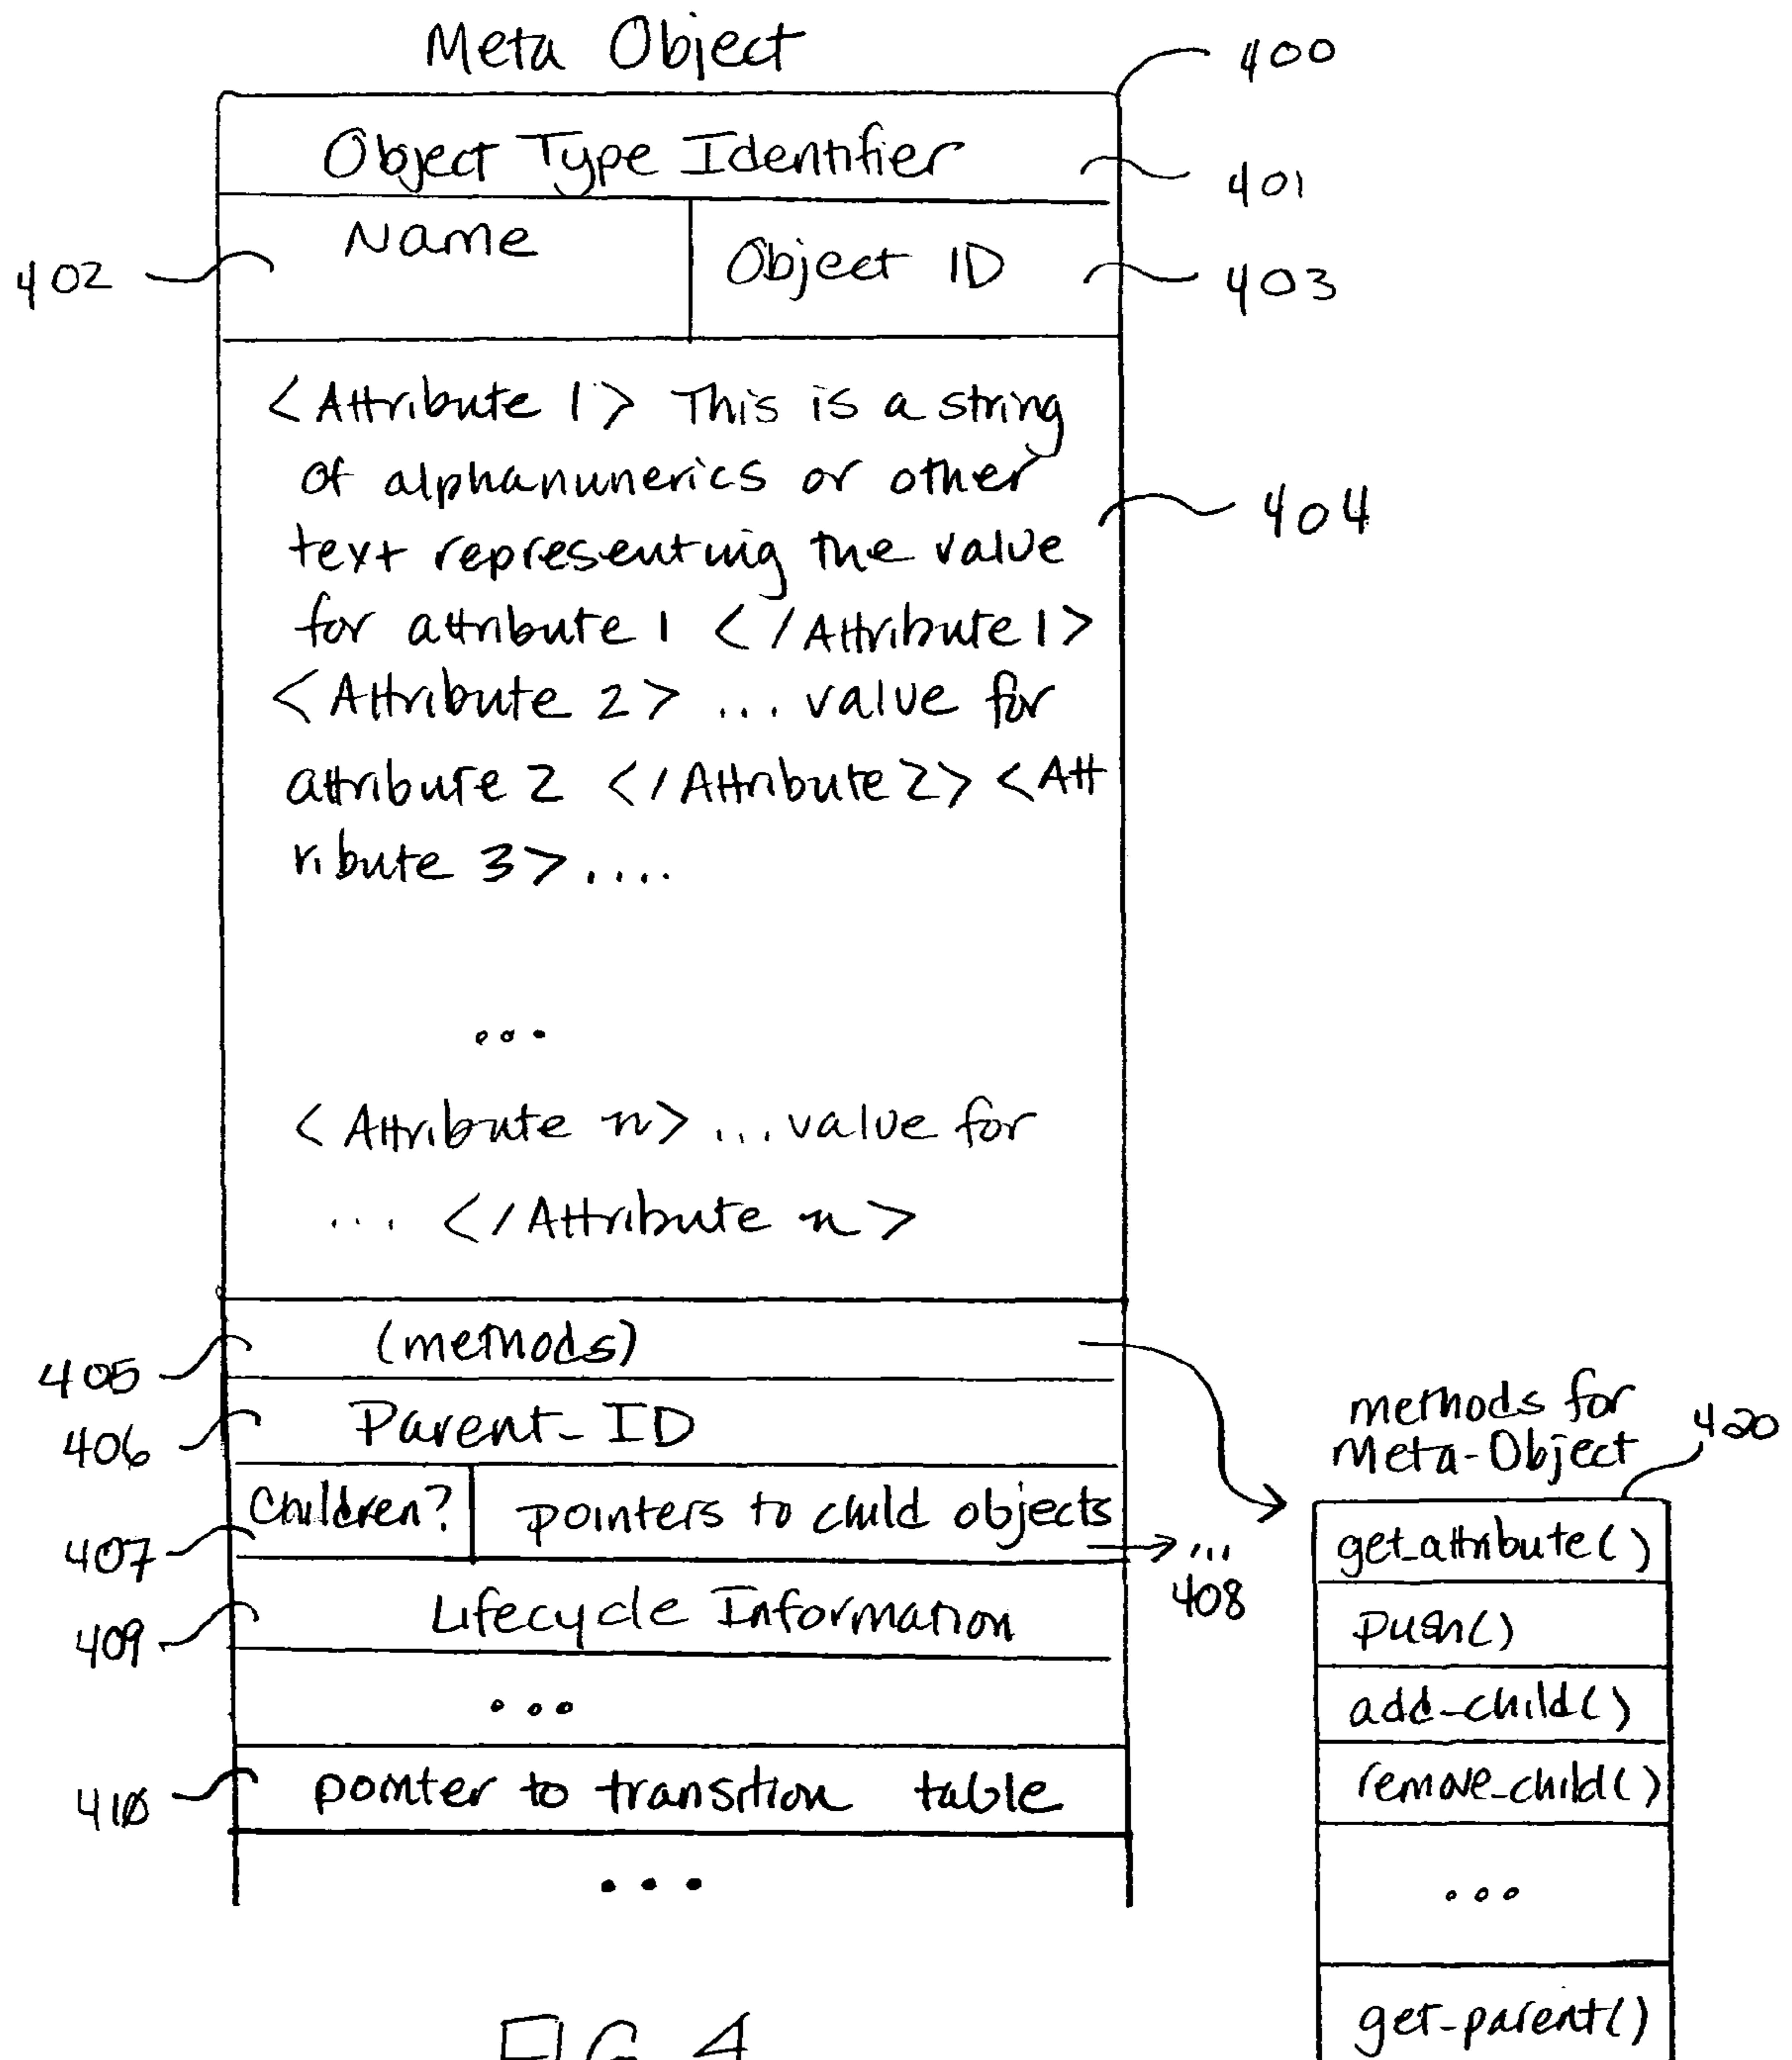 Meta Object
400
Object Type Identifier
401
Name
402
Object ID
403
<Attribute 1> This is a string
of alphanunerics or other
text representing the value
for attribute 1 </Attribute 1>
<Attribute 2> ... value for
attribute 2 </Attribute 2> <Att
ribute 3> ....
404
...
<Attribute n> ... value for
... </Attribute n>
(methods)
405
Parent_ID
406
Children?
pointers to child objects
407
...
408
Lifecycle Information
409
...
pointer to transition table
410
...
methods for
Meta-Object
420
get_attribute()
push()
add_child()
remove_child()
...
get_parent()
FIG 4